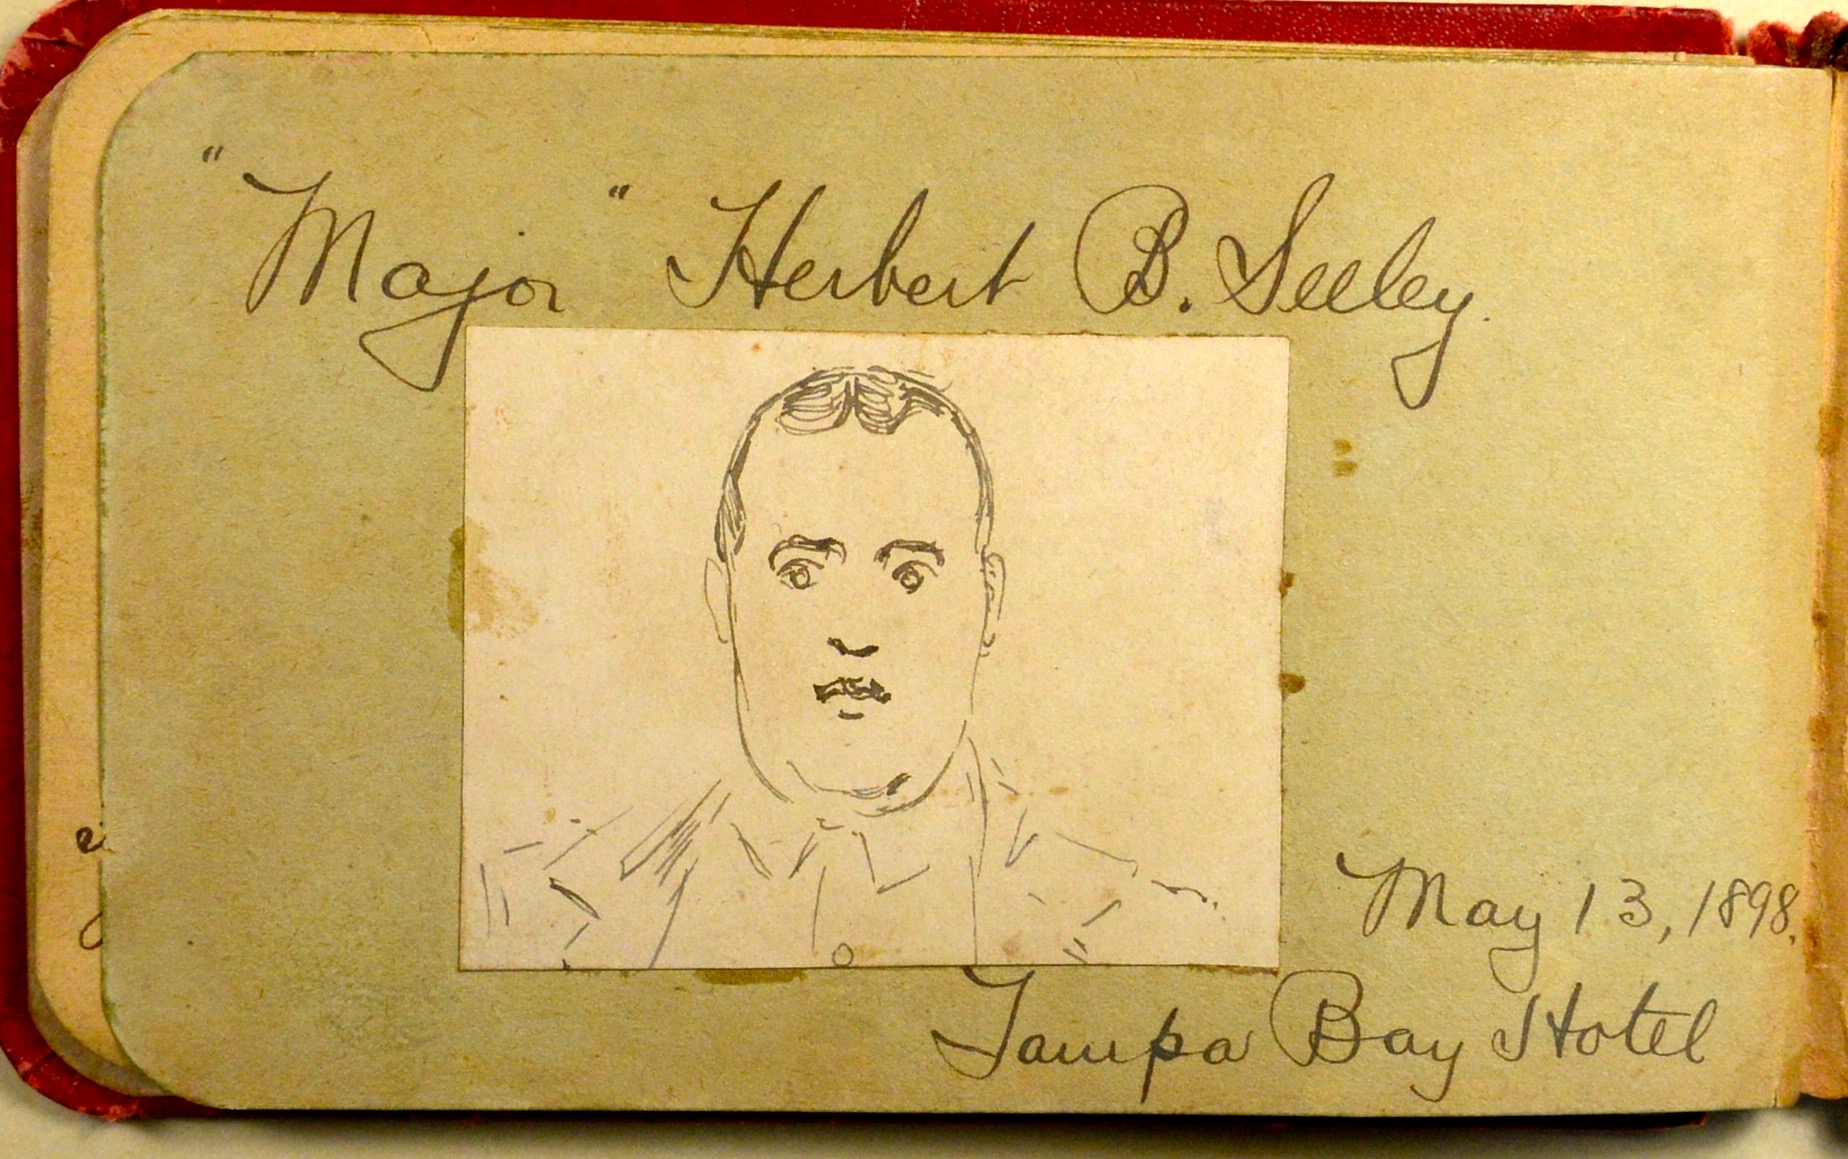 "Major" Herbert B. Seeley.
May 13, 1898.
Tampa Bay Hotel